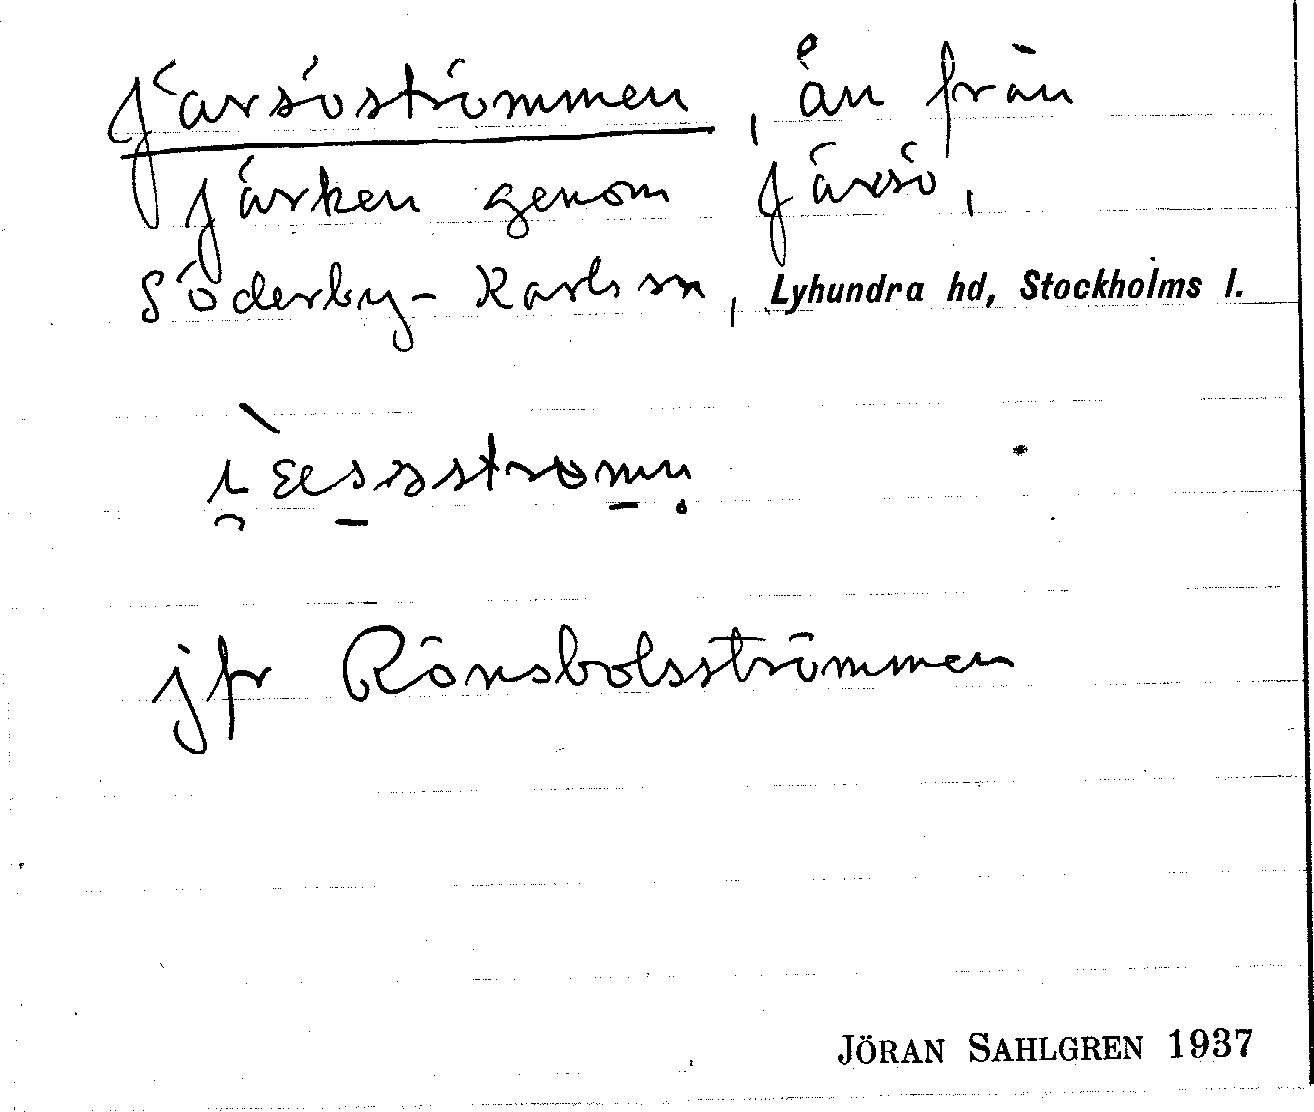 Järsöströmmen, ån från
Järken genom Järsö,
Söderby-Karlsn, Lyhundra hd, Stockholms l.
jfr Rönsbolsströmmen
JÖRAN SAHLGREN 1937